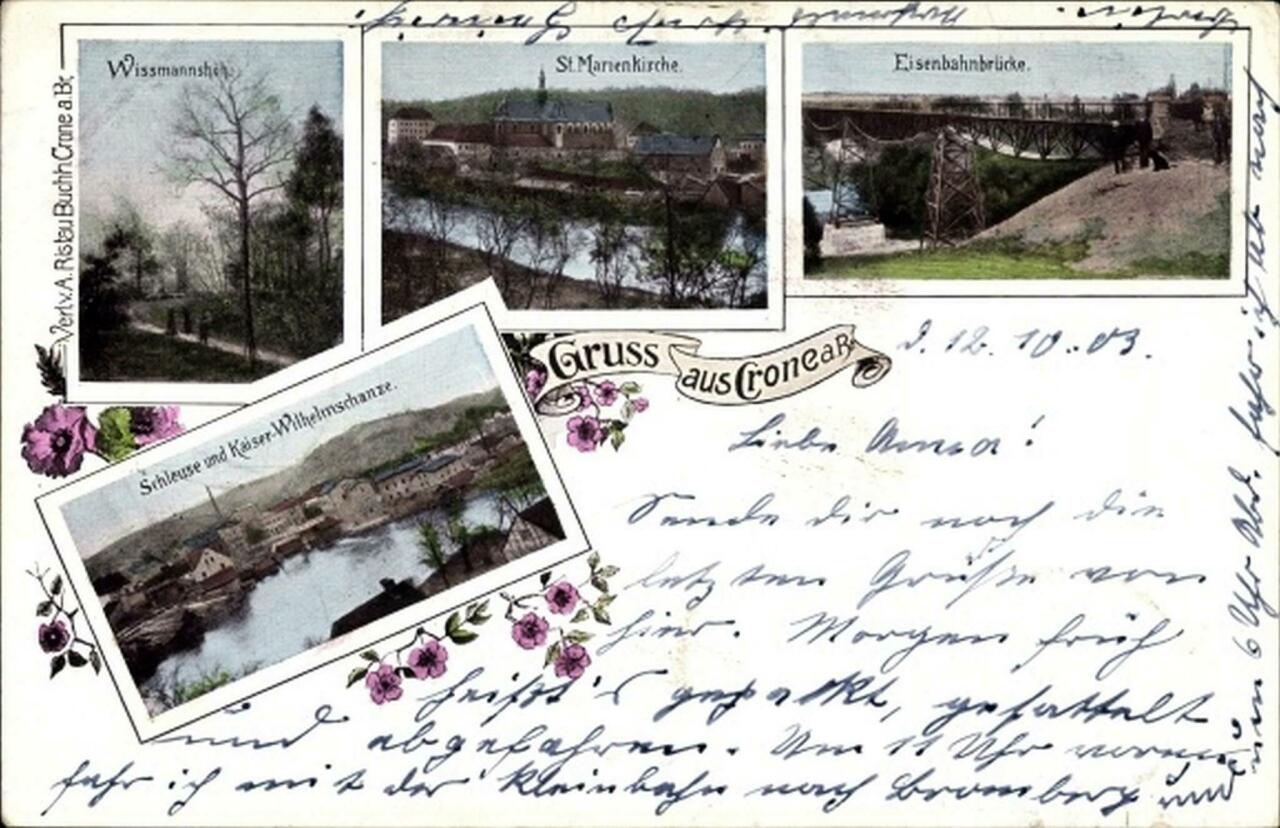 Wissmannshöh.
St. Marienkirche.
Eisenbahnbrücke.
Verl v. A. Ristau Buchh. Crone a. Br.
Schleuse und Kaiser-Wilhelmschanze.
Gruss aus Crone a. Br.
d. 12. 10. 03.
Liebe Anna!
Sende dir noch die
letzten Grüße von
hier. Morgen früh
heißt's gepackt, gesattelt
und abgefahren. Um 11 Uhr vorm.
fahr ich mit der Kleinbahn nach Bromberg und
um 6 Uhr Abd. fahr ich